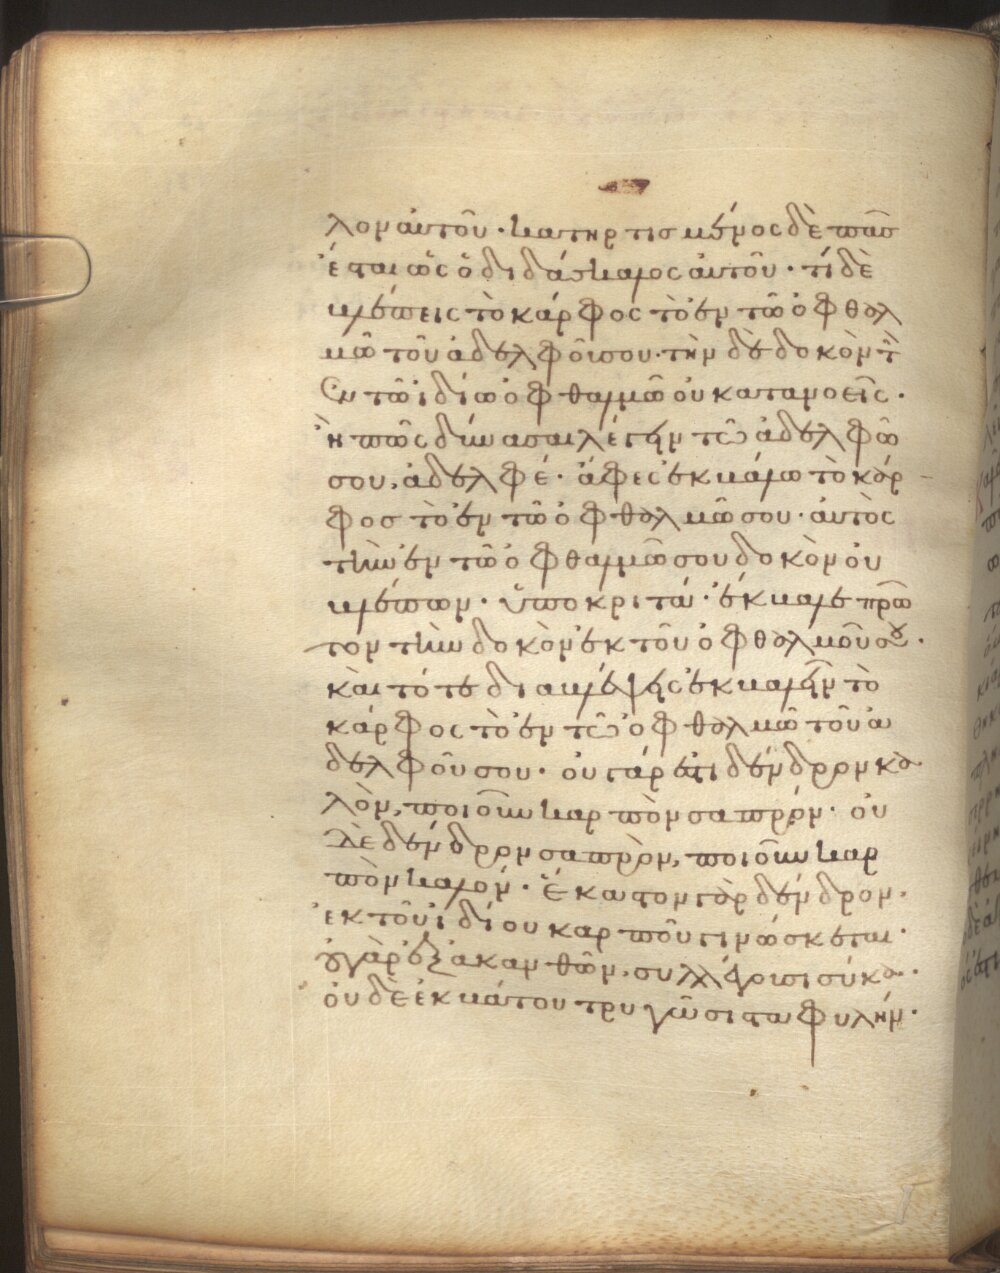 λον αὐτοῦ · κατηρτισμένος δὲ πᾶσ
ἔσται ὡς ὁ διδάσκαλος αὐτοῦ · τί δὲ
βλέπεις τὸ κάρφος τὸ ἐν τῶ ὀφθαλ
μῶ τοῦ ἀδελφοῦ σου · τὴν δὲ δοκὸν τὴ
ἐν τῶ ἰδίω ὀφθαλμῶ οὐ κατανοεῖς ·
ἢ πῶς δύνασαι λέγειν τῶ ἀδελφῶ
σου, ἀδελφέ · ἄφες ἐκβάλω τὸ κάρ
φοσ τὸ ἐν τῶ ὀφθαλμῶ σου · αὐτὸς
τὴν ἐν τῶ ὀφθαλμῶ σου δοκὸν οὐ
βλέπων · ὑποκριτά · ἔκβαλε πρῶ
τον τὴν δοκὸν ἐκ τοῦ ὀφθαλμοῦ σου ·
καὶ τότε διαβλέψεις ἐκβαλεῖν τὸ
κάρφος τὸ ἐν τῶ ὀφθαλμῶ τοῦ ἀ
δελφοῦ σου · οὐ γάρ ἐστι δένδρον κα
λὸν, ποιοῦν καρπὸν σαπρόν · οὐ
δὲ δένδρον σαπρὸν, ποιοῦν καρ
πὸν καλόν · ἕκαστον γὰρ δένδρον ·
ἐκ τοῦ ἰδίου καρποῦ γινώσκεται ·
οὐ γὰρ ἐξ ἀκανθῶν, συλλέγουσι σῦκα ·
οὐδὲ ἐκ βάτου τρυγῶσι σταφυλήν ·